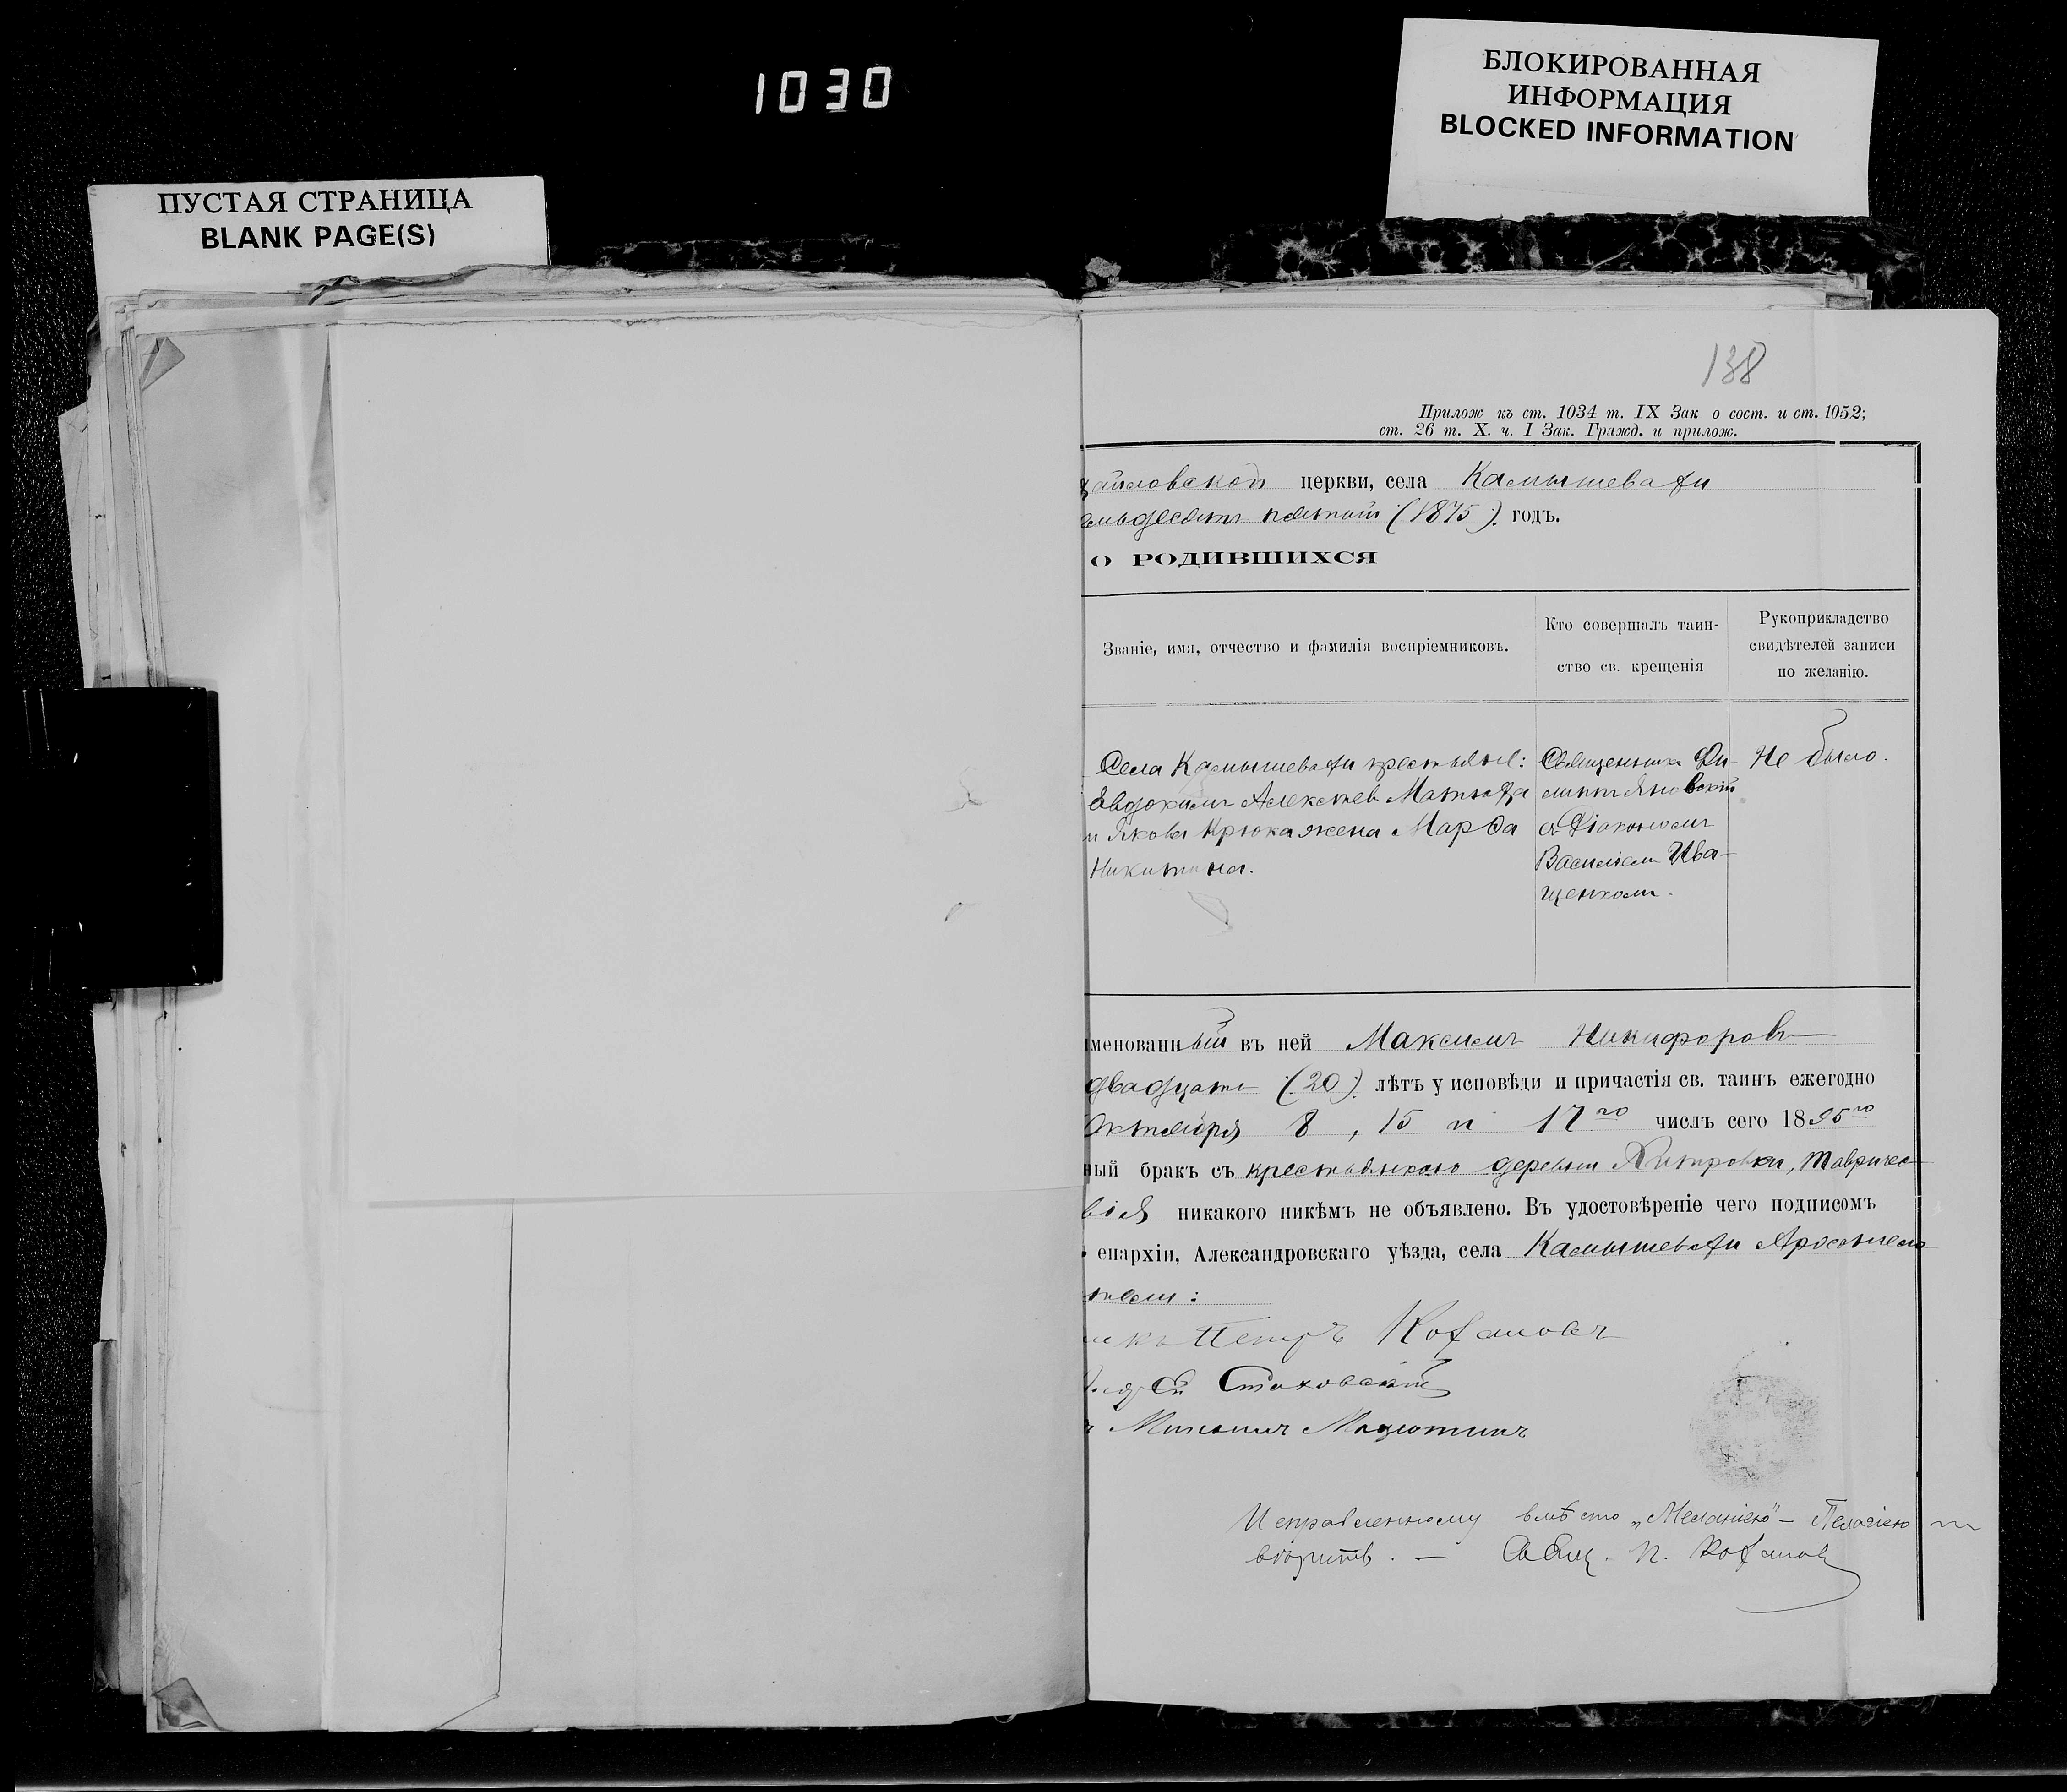 1030
БЛОКИРОВАННАЯ
ИНФОРМАЦИЯ
BLOCKED INFORMATION
ПУСТАЯ СТРАНИЦА
BLANK PAGE(S)
138
Прилож къ ст. 1034 т. IX Зак о сост. и ст. 1052;
ст. 26 т. X. ч. I Зак. Гражд. и прилож.
хайловской церкви, села Камышевахи
семьдесятъ пятый (1875) годъ.
О РОДИВШИХСЯ
Званіе, имя, отчество и фамилія воспріемниковъ.
Кто совершалъ таин-
ство св. крещенія
Рукоприкладство
свидѣтелей записи
по желанію.
Села Камышевахи крестьяне:
Евдокимъ Алексѣев
и Якова Крюка жена Марѳа
Никитина.
Священникъ Фи-
липпъ Яновскій
съ Діакономъ
Василіемъ Ива-
щенкомъ.
Не было.
именованный въ ней Максимъ Никифоровъ
двадцати (20) лѣтъ у исповѣди и причастія св. таинъ ежегодно
Октября 8, 15 и 17го числъ сего 1895го
ный бракъ съ крестьянкою деревни Хитровки, Тавричес-
вія никакого никѣмъ не объявлено. Въ удостовѣреніе чего подписомъ
епархіи, Александровскаго уѣзда, села Камышевахи
Петръ Кохановъ
Стаховскій
Исправленному вмѣсто „Меланіею" — Пелагіею
вѣрить. — Свящ. П. Кохановъ